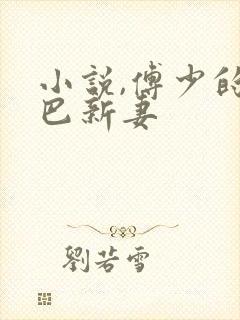 小説,傅少的
巴新妻
劉若雪